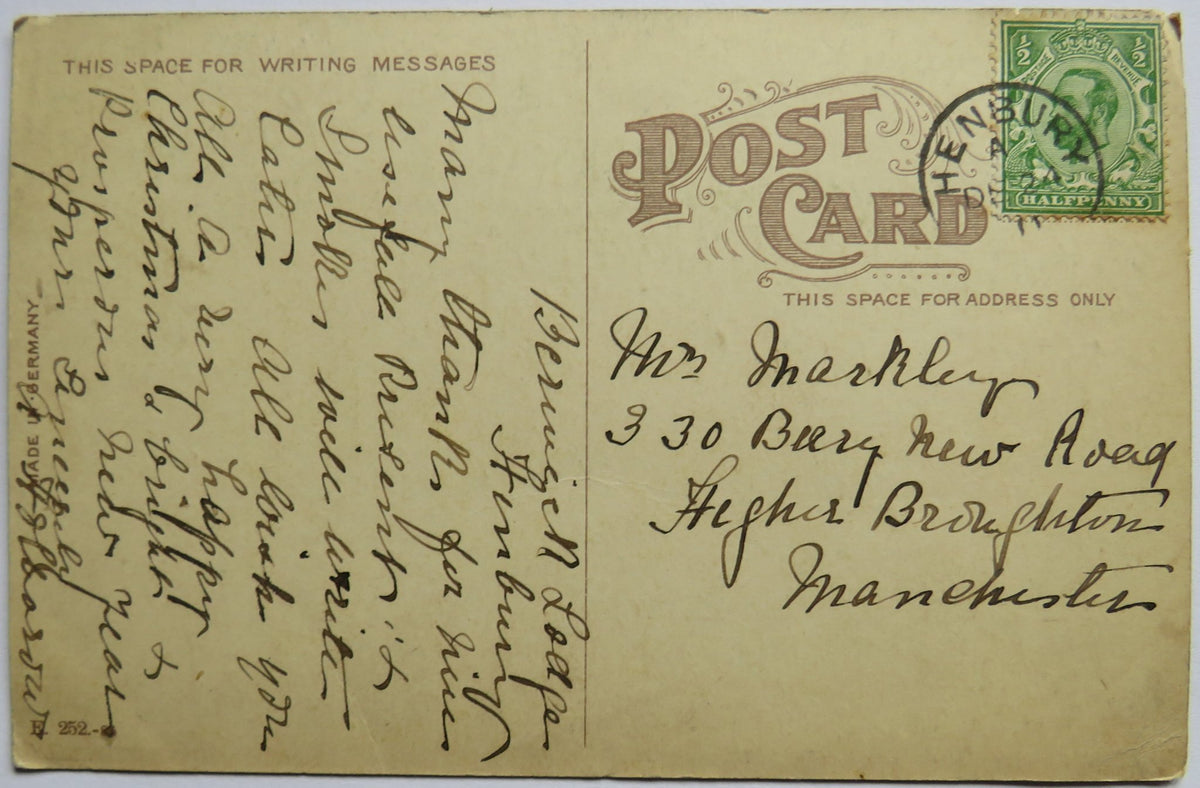 THIS SPACE FOR WRITING MESSAGES
Berwick Lodge
Henbury
Many thanks for nice
usefull Present, &
Smokes will write
Later All wish you
All a very happy
Christmas & bright &
prosperous New Year
yours sincerely
MADE IN GERMANY
E. 252.
POST
CARD
THIS SPACE FOR ADDRESS ONLY
Mrs Markley
330 Bury New Road
Higher Broughton
Manchester
½ ½
POSTAGE REVENUE
HALFPENNY
HENBURY
A
DE 24
11